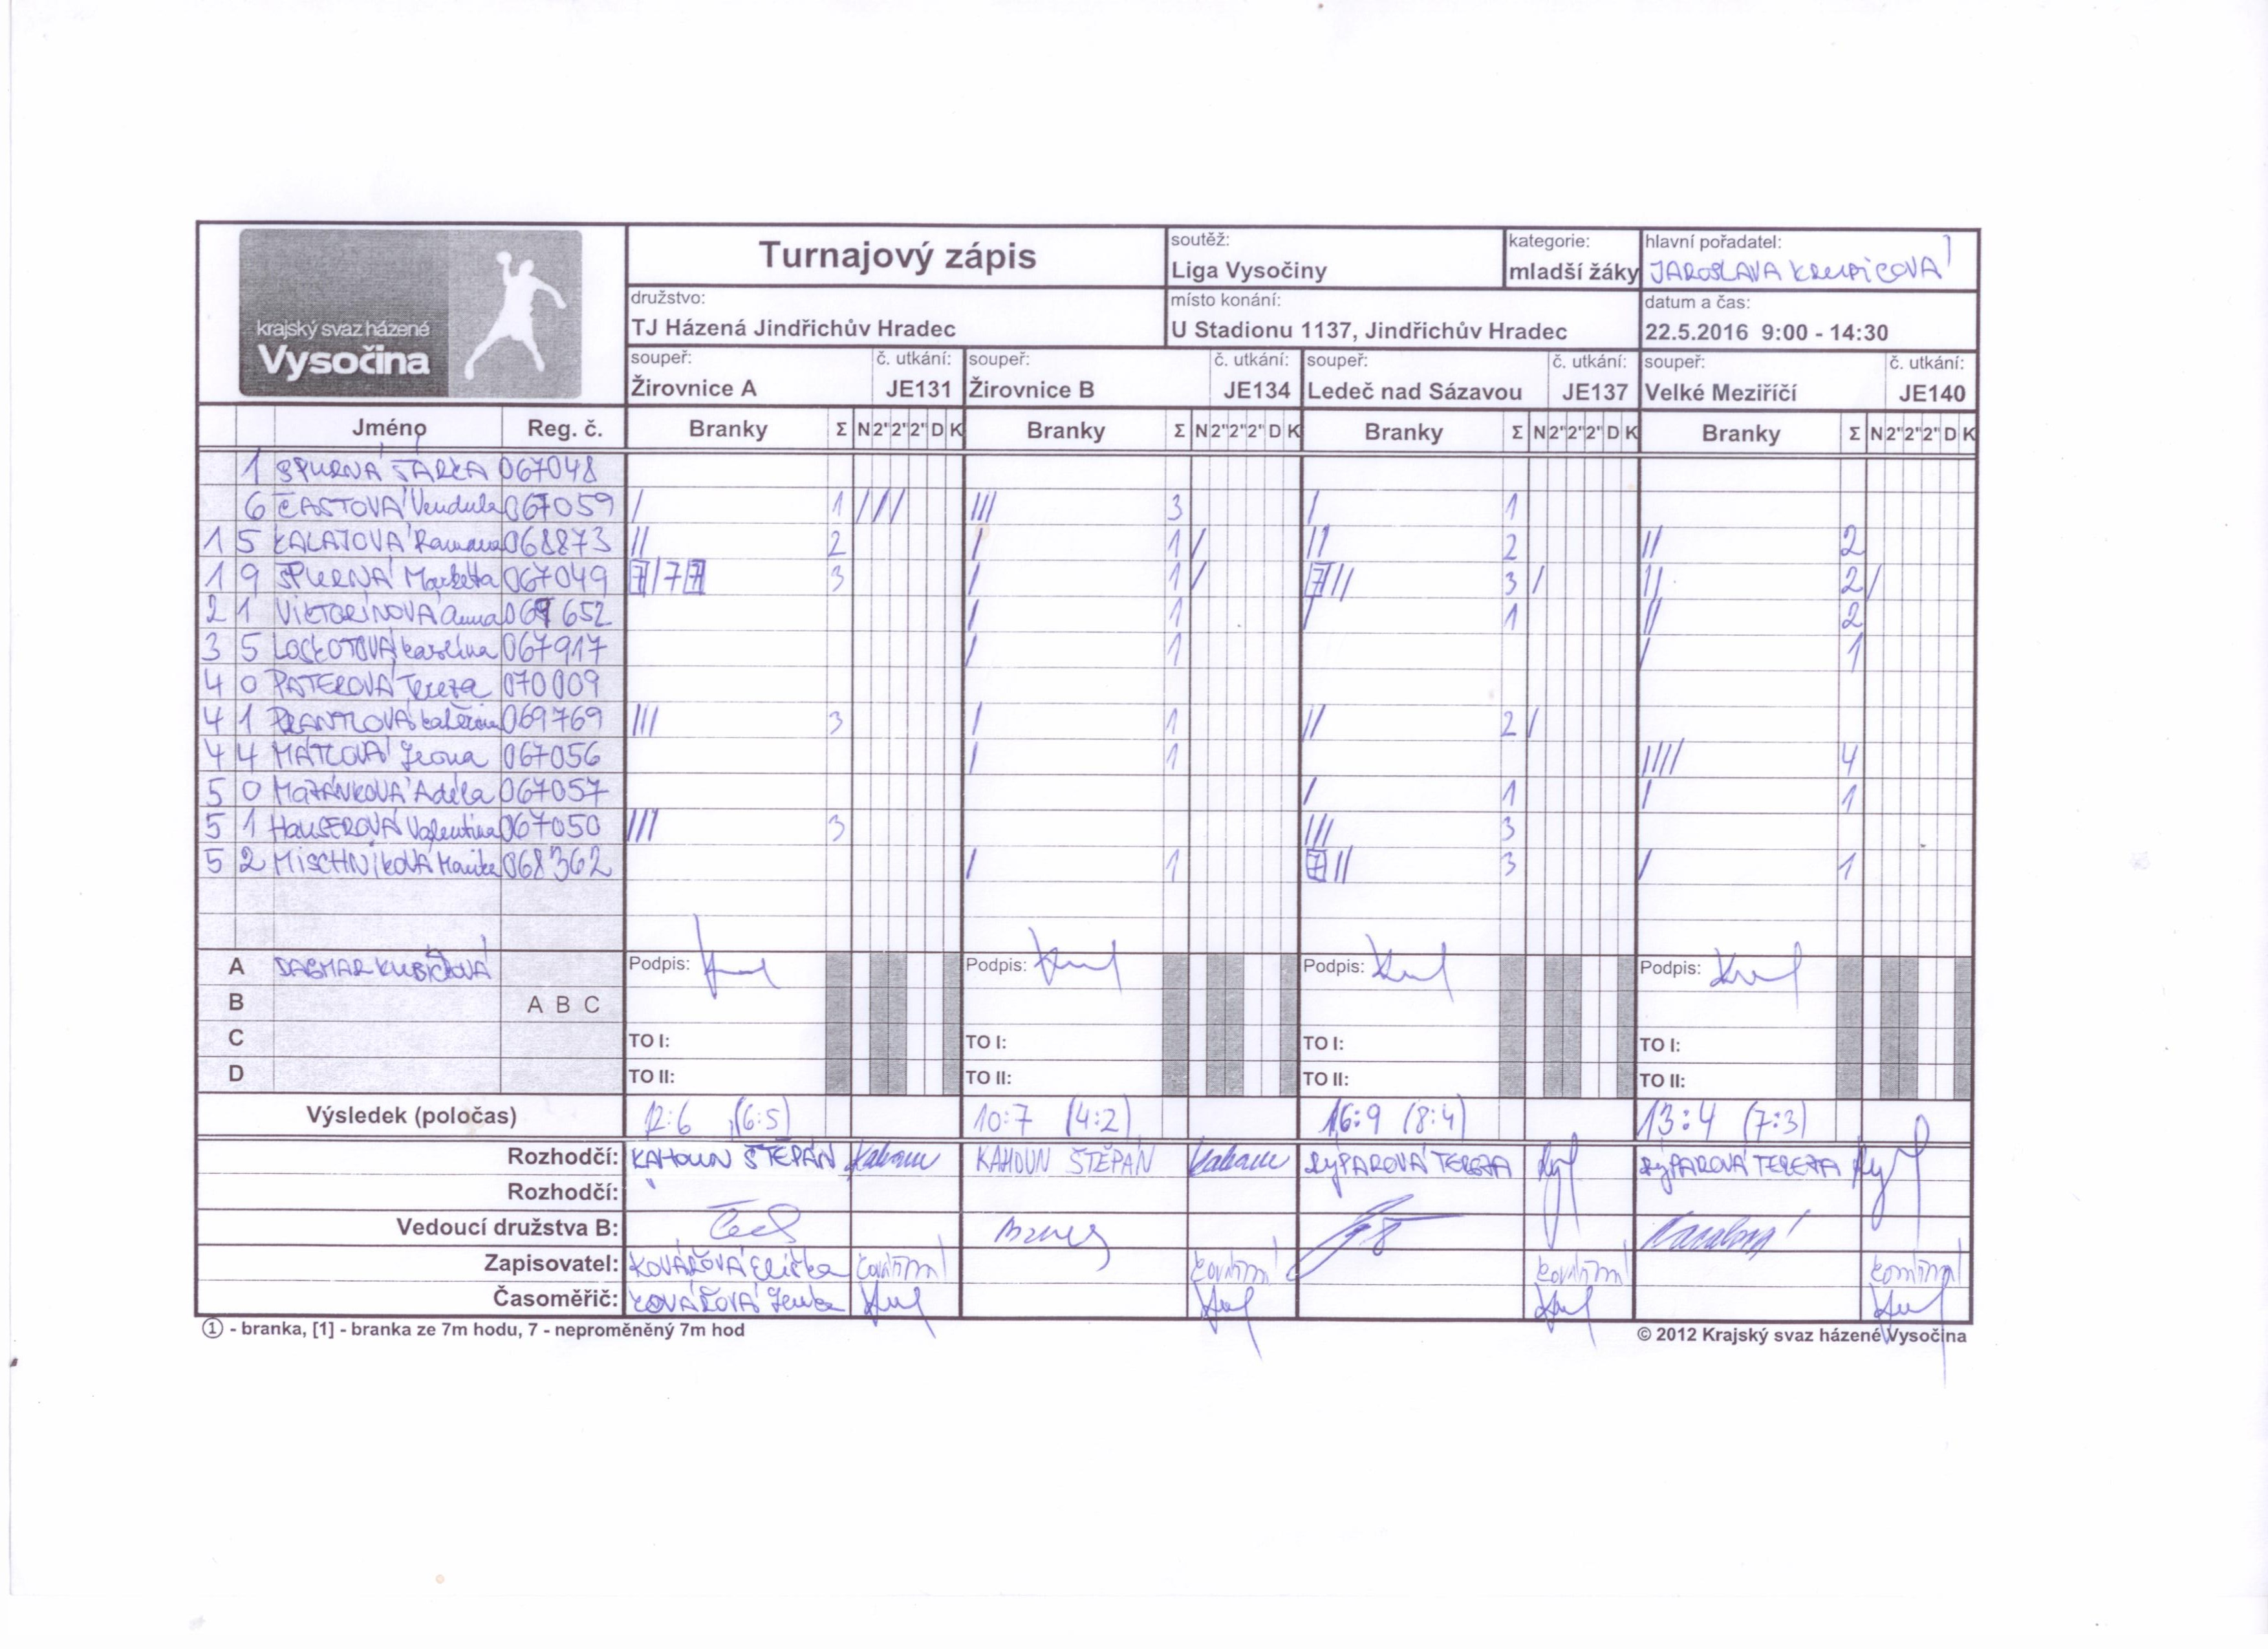 krajský svaz házené
Vysočina
Turnajový zápis
soutěž:
Liga Vysočiny
kategorie:
mladší žáky
hlavní pořadatel:
JAROSLAVA
družstvo:
TJ Házená Jindřichův Hradec
místo konání:
U Stadionu 1137, Jindřichův Hradec
datum a čas:
22.5.2016 9:00 - 14:30
soupeř: č. utkání: soupeř: č. utkání: soupeř: č. utkání: soupeř: č. utkání:
Žirovnice A JE131 Žirovnice B JE134 Ledeč nad Sázavou JE137 Velké Meziříčí JE140
Jméno Reg. č. Branky Σ N 2" 2" 2" D K Branky Σ N 2" 2" 2" D K Branky Σ N 2" 2" 2" D K Branky Σ N 2" 2" 2" D K
1 SPURNÁ ŠÁRKA 067048
6 ČASTOVÁ Vendula 067059 / 1 / / / /// 3 / 1
1 5 068873 // 2 / 1 / // 2 // 2
1 9 SPURNÁ Markéta 067049 [7] / 7 [7] 3 / 1 / [7] // 3 / // 2 /
2 1 VIKTORINOVÁ Anna 652 / 1 / 1 // 2
3 5 Karolína 067917 / 1 / 1
4 0 PATEROVÁ Tereza 070009
4 1 069769 /// 3 / 1 // 2 /
4 4 MÁTLOVÁ 067056 / 1 //// 4
5 0 MAZÁNKOVÁ Adéla 067057 / 1 / 1
5 1 HAUSEROVÁ Valentina 067050 /// 3 /// 3
5 2 MISCHNÍKOVÁ 068362 / 1 [7] // 3 / 1
A DAGMAR Podpis: Podpis: Podpis: Podpis:
B A B C
C TO I: TO I: TO I: TO I:
D TO II: TO II: TO II: TO II:
Výsledek (poločas) 12:6 (6:5) 10:7 (4:2) 16:9 (8:4) 13:4 (7:3)
Rozhodčí: KAHOUN ŠTĚPÁN KAHOUN ŠTĚPÁN RYPAROVÁ TEREZA RYPAROVÁ TEREZA
Rozhodčí:
Vedoucí družstva B:
Zapisovatel: KOVÁŘOVÁ Eliška
Časoměřič: KOVÁŘOVÁ Lenka
① - branka, [1] - branka ze 7m hodu, 7 - neproměněný 7m hod
© 2012 Krajský svaz házené Vysočina